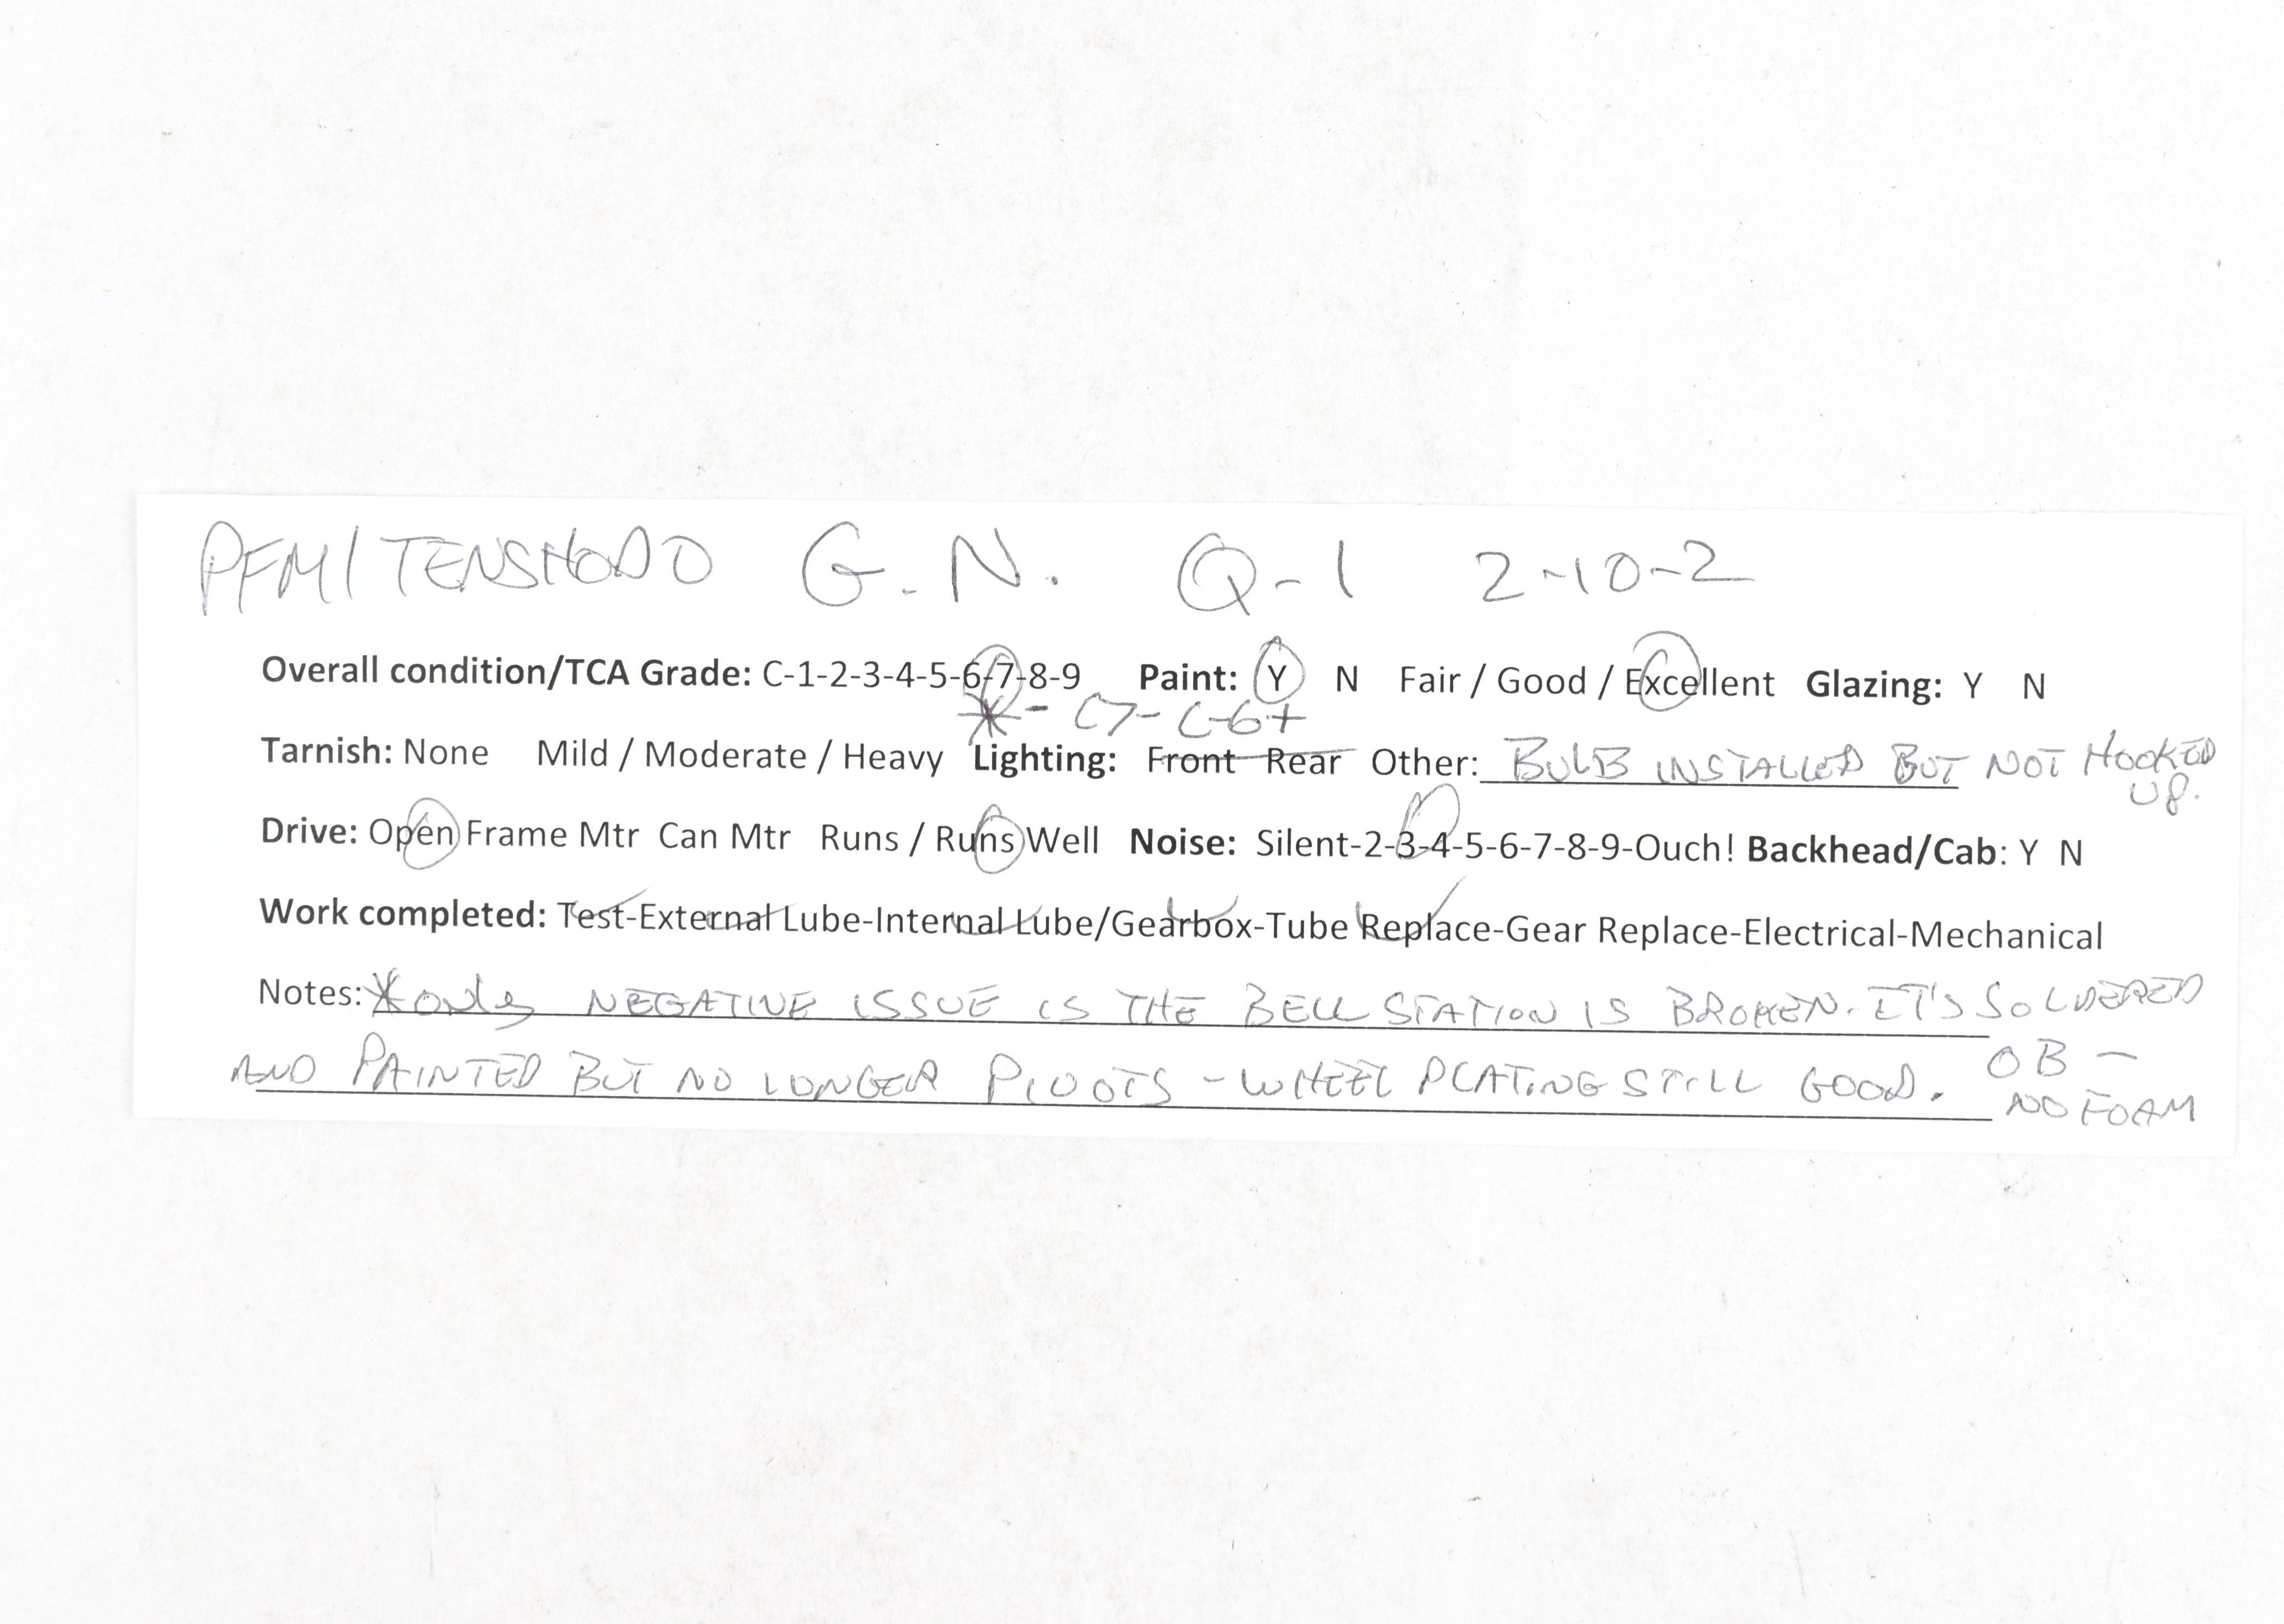 PFM/TENSHODO G.N. Q-1 2-10-2
Overall condition/TCA Grade: C-1-2-3-4-5-6-7-8-9 Paint: Y N Fair / Good / Excellent Glazing: Y N
*- C7- C-6+
Tarnish: None Mild / Moderate / Heavy Lighting: Front Rear Other: BULB INSTALLED BUT NOT HOOKED
UP.
Drive: Open Frame Mtr Can Mtr Runs / Runs Well Noise: Silent-2-3-4-5-6-7-8-9-Ouch! Backhead/Cab: Y N
Work completed: Test-External Lube-Internal Lube/Gearbox-Tube Replace-Gear Replace-Electrical-Mechanical
Notes: *only NEGATIVE ISSUE IS THE BELL STATION IS BROKEN. IT'S SOLDERED
AND PAINTED BUT NO LONGER PIVOTS - WHEEL PLATING STILL GOOD. OB -
NO FOAM